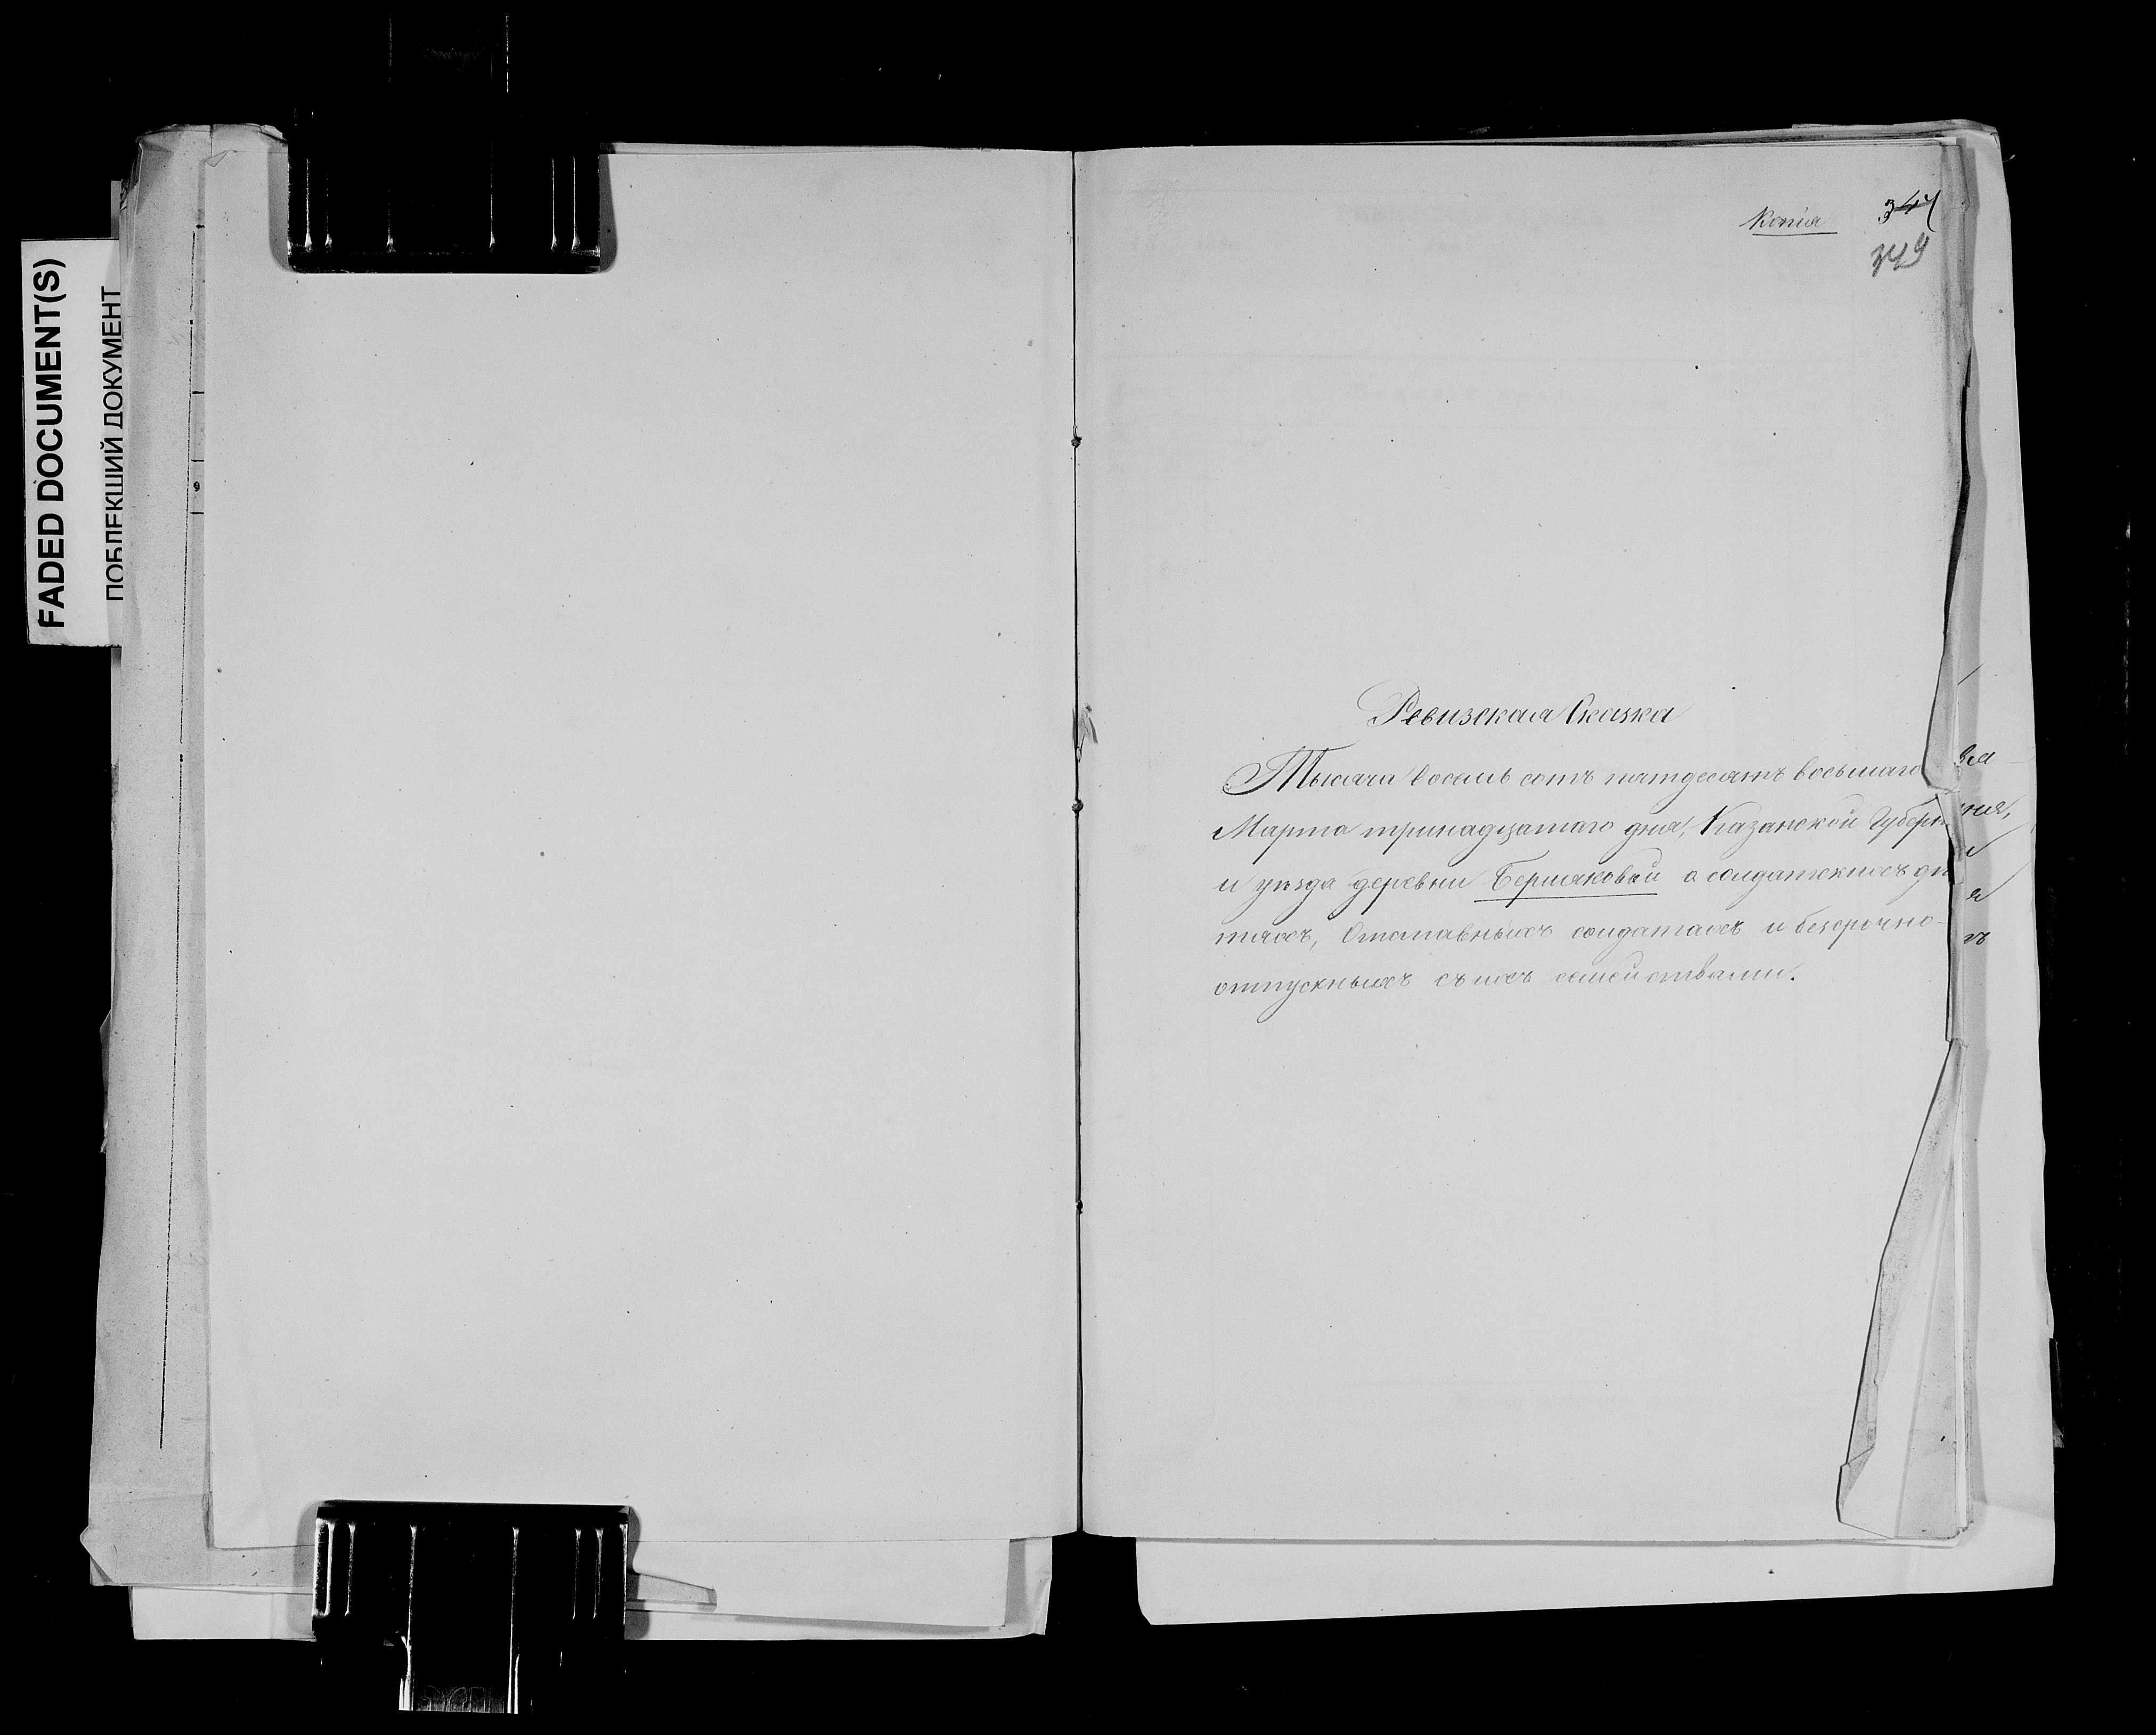 FADED DOCUMENT(S)
ПОБЛЕКШИЙ ДОКУМЕНТ
9
Копія
344
349
Ревизская Сказка
Тысяча восемь сотъ пятдесятъ восьмаго
Марта тринадцатаго дня, Казанской Губерн
и уѣзда деревни Бермяковой о солдатскихъ дѣ
тяхъ, Отставныхъ солдатахъ и безсрочно-
отпускныхъ съ ихъ семействами.